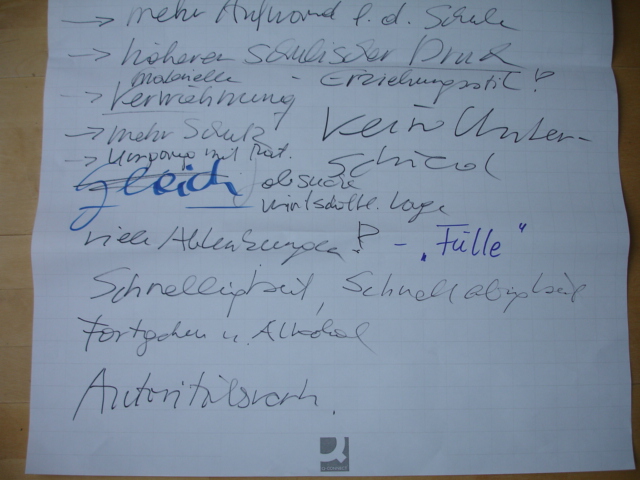 → mehr Aufwand f. d. Schule
→ höherer schulischer Druck
materielle - Erziehungsstil?
→ Verwöhnung
→ mehr Schutz
Kein Unter-
schied
→ Umgang mit
gleich
wirtschaftl. Lage
viele Ablenkungen? - „Fülle"
Schnelligkeit, Schnellebigkeit
Fortgehen u. Alkohol